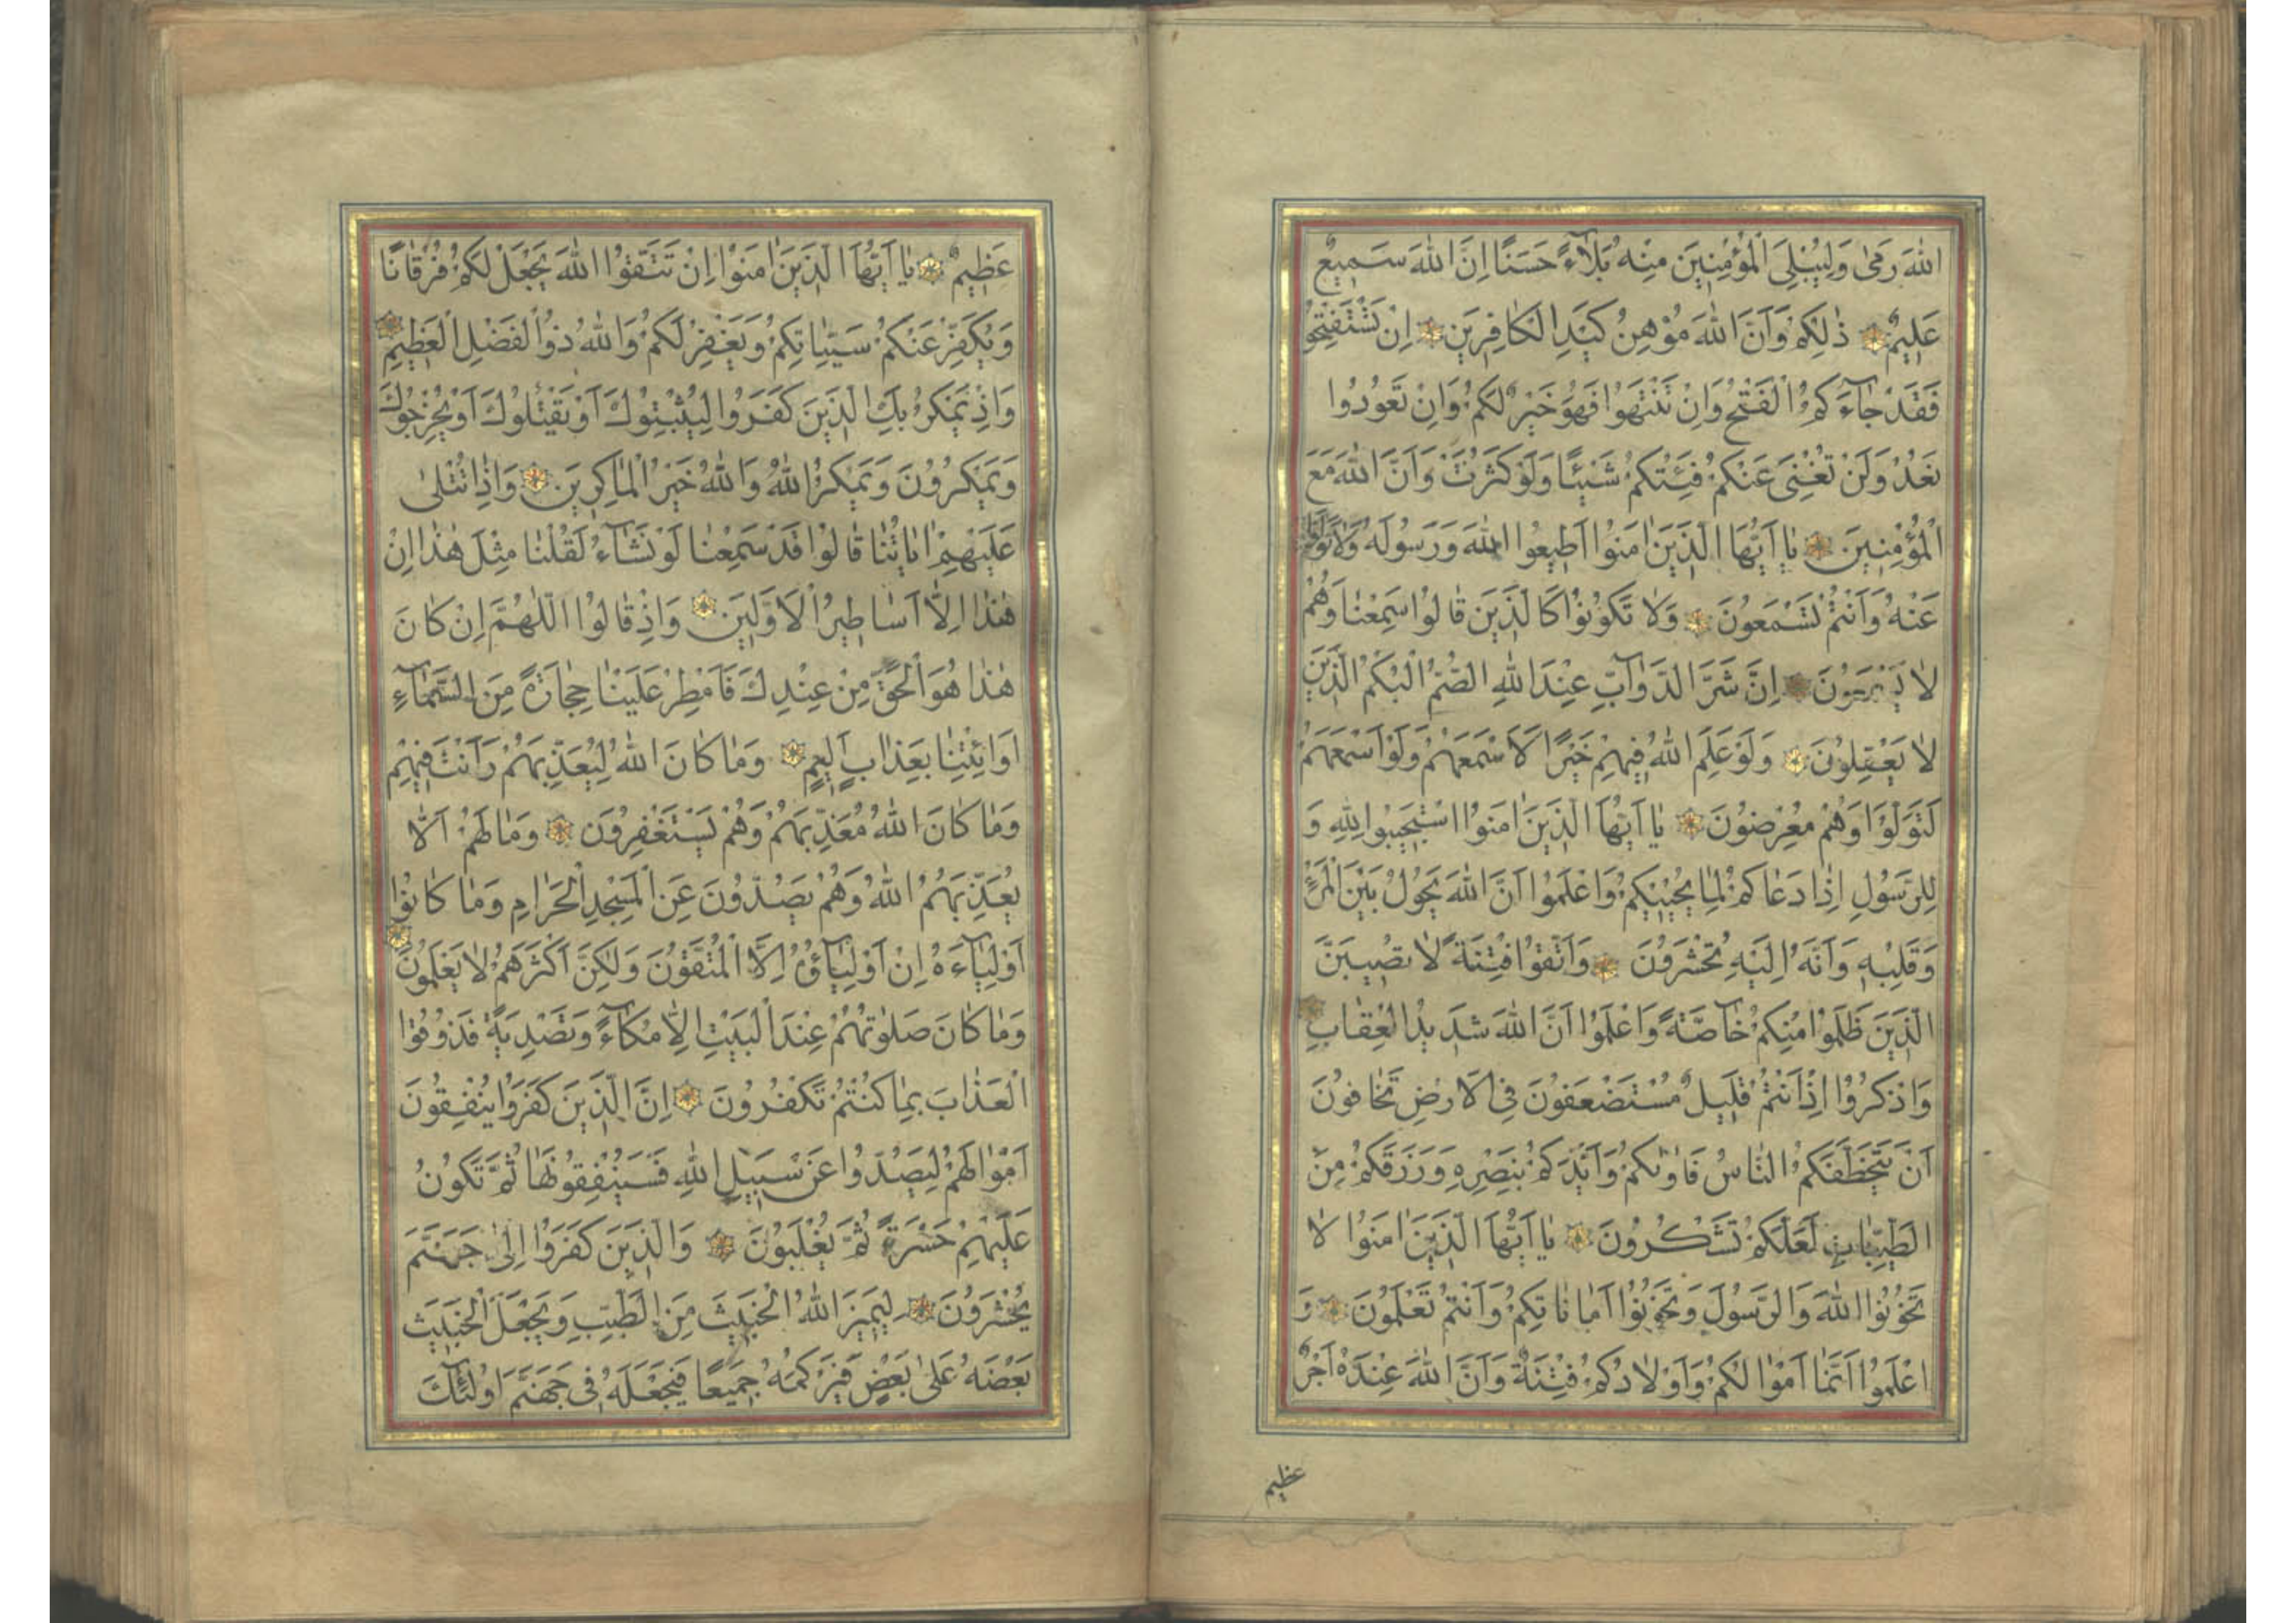 اللّٰهَ رَمٰى وَلِيُبْلِيَ الْمُؤْمِنِينَ مِنْهُ بَلَآءً حَسَنًا اِنَّ اللّٰهَ سَمِيعٌ
عَلِيمٌ ذٰلِكُمْ وَاَنَّ اللّٰهَ مُوْهِنُ كَيْدِ الْكَافِرِينَ اِنْ تَسْتَفْتِحُوا
فَقَدْ جَآءَكُمُ الْفَتْحُ وَاِنْ تَنْتَهُوا فَهُوَ خَيْرٌ لَكُمْ وَاِنْ تَعُودُوا
نَعُدْ وَلَنْ تُغْنِيَ عَنْكُمْ فِئَتُكُمْ شَيْئًا وَلَوْ كَثُرَتْ وَاَنَّ اللّٰهَ مَعَ
الْمُؤْمِنِينَ يٰا اَيُّهَا الَّذِينَ اٰمَنُوا اَطِيعُوا اللّٰهَ وَرَسُولَهُ وَلٰا تَوَلَّوْا
عَنْهُ وَاَنْتُمْ تَسْمَعُونَ وَلٰا تَكُونُوا كَالَّذِينَ قٰالُوا سَمِعْنٰا وَهُمْ
لٰا يَسْمَعُونَ اِنَّ شَرَّ الدَّوٰآبِّ عِنْدَ اللّٰهِ الصُّمُّ الْبُكْمُ الَّذِينَ
لٰا يَعْقِلُونَ وَلَوْ عَلِمَ اللّٰهُ فِيهِمْ خَيْرًا لَاَسْمَعَهُمْ وَلَوْ اَسْمَعَهُمْ
لَتَوَلَّوْا وَهُمْ مُعْرِضُونَ يٰا اَيُّهَا الَّذِينَ اٰمَنُوا اسْتَجِيبُوا لِلّٰهِ وَ
لِلرَّسُولِ اِذٰا دَعٰاكُمْ لِمٰا يُحْيِيكُمْ وَاعْلَمُوا اَنَّ اللّٰهَ يَحُولُ بَيْنَ الْمَرْءِ
وَقَلْبِهِ وَاَنَّهُ اِلَيْهِ تُحْشَرُونَ وَاتَّقُوا فِتْنَةً لٰا تُصِيبَنَّ
الَّذِينَ ظَلَمُوا مِنْكُمْ خٰآصَّةً وَاعْلَمُوا اَنَّ اللّٰهَ شَدِيدُ الْعِقٰابِ
وَاذْكُرُوا اِذْ اَنْتُمْ قَلِيلٌ مُسْتَضْعَفُونَ فِي الْاَرْضِ تَخٰافُونَ
اَنْ يَتَخَطَّفَكُمُ النّٰاسُ فَاٰوٰيكُمْ وَاَيَّدَكُمْ بِنَصْرِهِ وَرَزَقَكُمْ مِنَ
الطَّيِّبٰاتِ لَعَلَّكُمْ تَشْكُرُونَ يٰا اَيُّهَا الَّذِينَ اٰمَنُوا لٰا
تَخُونُوا اللّٰهَ وَالرَّسُولَ وَتَخُونُوا اَمٰانٰاتِكُمْ وَاَنْتُمْ تَعْلَمُونَ وَ
اعْلَمُوا اَنَّمٰا اَمْوٰالُكُمْ وَاَوْلٰادُكُمْ فِتْنَةٌ وَاَنَّ اللّٰهَ عِنْدَهُ اَجْرٌ
عظيم
عَظِيمٌ يٰا اَيُّهَا الَّذِينَ اٰمَنُوا اِنْ تَتَّقُوا اللّٰهَ يَجْعَلْ لَكُمْ فُرْقٰانًا
وَيُكَفِّرْ عَنْكُمْ سَيِّئٰاتِكُمْ وَيَغْفِرْ لَكُمْ وَاللّٰهُ ذُو الْفَضْلِ الْعَظِيمِ
وَاِذْ يَمْكُرُ بِكَ الَّذِينَ كَفَرُوا لِيُثْبِتُوكَ اَوْ يَقْتُلُوكَ اَوْ يُخْرِجُوكَ
وَيَمْكُرُونَ وَيَمْكُرُ اللّٰهُ وَاللّٰهُ خَيْرُ الْمٰاكِرِينَ وَاِذٰا تُتْلٰى
عَلَيْهِمْ اٰيٰاتُنٰا قٰالُوا قَدْ سَمِعْنٰا لَوْ نَشٰآءُ لَقُلْنٰا مِثْلَ هٰذٰا اِنْ
هٰذٰا اِلّٰا اَسٰاطِيرُ الْاَوَّلِينَ وَاِذْ قٰالُوا اللّٰهُمَّ اِنْ كٰانَ
هٰذٰا هُوَ الْحَقَّ مِنْ عِنْدِكَ فَاَمْطِرْ عَلَيْنٰا حِجٰارَةً مِنَ السَّمٰآءِ
اَوِ ائْتِنٰا بِعَذٰابٍ اَلِيمٍ وَمٰا كٰانَ اللّٰهُ لِيُعَذِّبَهُمْ وَاَنْتَ فِيهِمْ
وَمٰا كٰانَ اللّٰهُ مُعَذِّبَهُمْ وَهُمْ يَسْتَغْفِرُونَ وَمٰا لَهُمْ اَلّٰا
يُعَذِّبَهُمُ اللّٰهُ وَهُمْ يَصُدُّونَ عَنِ الْمَسْجِدِ الْحَرٰامِ وَمٰا كٰانُوا
اَوْلِيٰآءَهُ اِنْ اَوْلِيٰآؤُهُ اِلَّا الْمُتَّقُونَ وَلٰكِنَّ اَكْثَرَهُمْ لٰا يَعْلَمُونَ
وَمٰا كٰانَ صَلٰوتُهُمْ عِنْدَ الْبَيْتِ اِلّٰا مُكٰآءً وَتَصْدِيَةً فَذُوقُوا
الْعَذٰابَ بِمٰا كُنْتُمْ تَكْفُرُونَ اِنَّ الَّذِينَ كَفَرُوا يُنْفِقُونَ
اَمْوٰالَهُمْ لِيَصُدُّوا عَنْ سَبِيلِ اللّٰهِ فَسَيُنْفِقُونَهٰا ثُمَّ تَكُونُ
عَلَيْهِمْ حَسْرَةً ثُمَّ يُغْلَبُونَ وَالَّذِينَ كَفَرُوا اِلٰى جَهَنَّمَ
يُحْشَرُونَ لِيَمِيزَ اللّٰهُ الْخَبِيثَ مِنَ الطَّيِّبِ وَيَجْعَلَ الْخَبِيثَ
بَعْضَهُ عَلٰى بَعْضٍ فَيَرْكُمَهُ جَمِيعًا فَيَجْعَلَهُ فِي جَهَنَّمَ اُولٰئِكَ